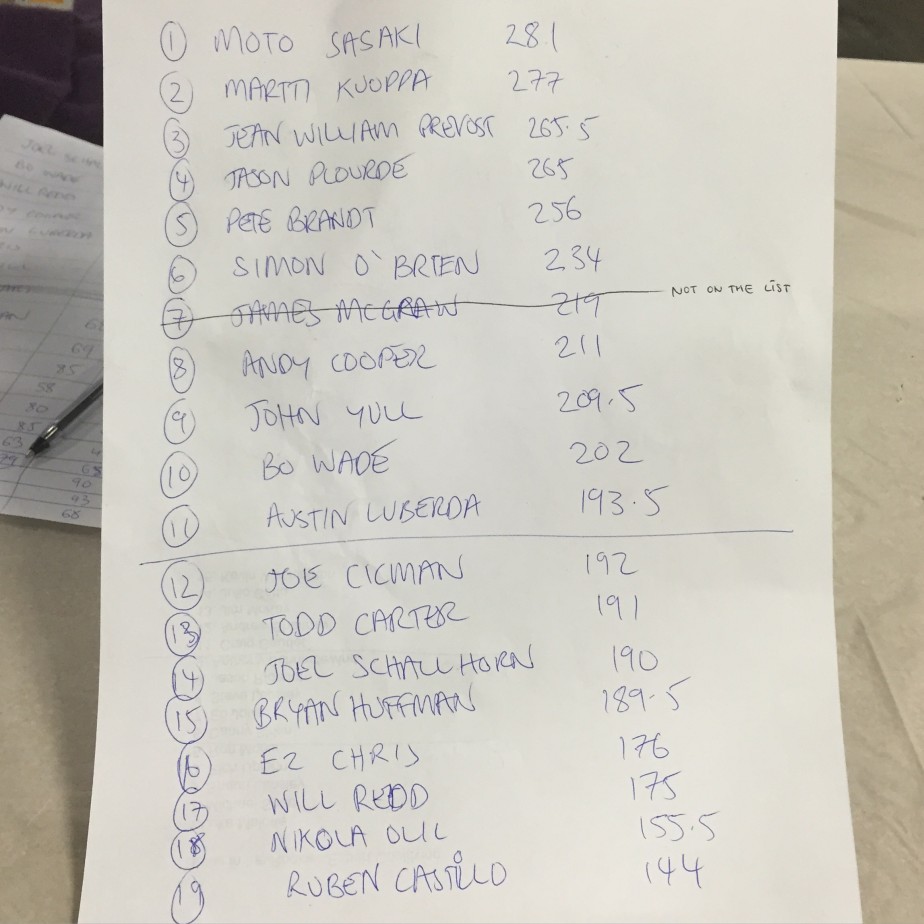 1 MOTO SASAKI 281
2 MARTTI KUOPPA 277
3 JEAN WILLIAM PREVOST 265.5
4 JASON PLOURDE 265
5 PETE BRANDT 256
6 SIMON O'BRIEN 234
7 JAMES MCGRAW 219 NOT ON THE LIST
8 ANDY COOPER 211
9 JOHN YULL 209.5
10 BO WADE 202
11 AUSTIN LUBERDA 193.5
12 JOE CICMAN 192
13 TODD CARTER 191
14 JOEL SCHALLHORN 190
15 BRYAN HUFFMAN 189.5
16 EZ CHRIS 176
17 WILL REDD 175
18 NIKOLA OLIC 155.5
19 RUBEN CASTILLO 144
JOEL
BO WADE
WILL REDD
85
58
80
85
63
90
93
68